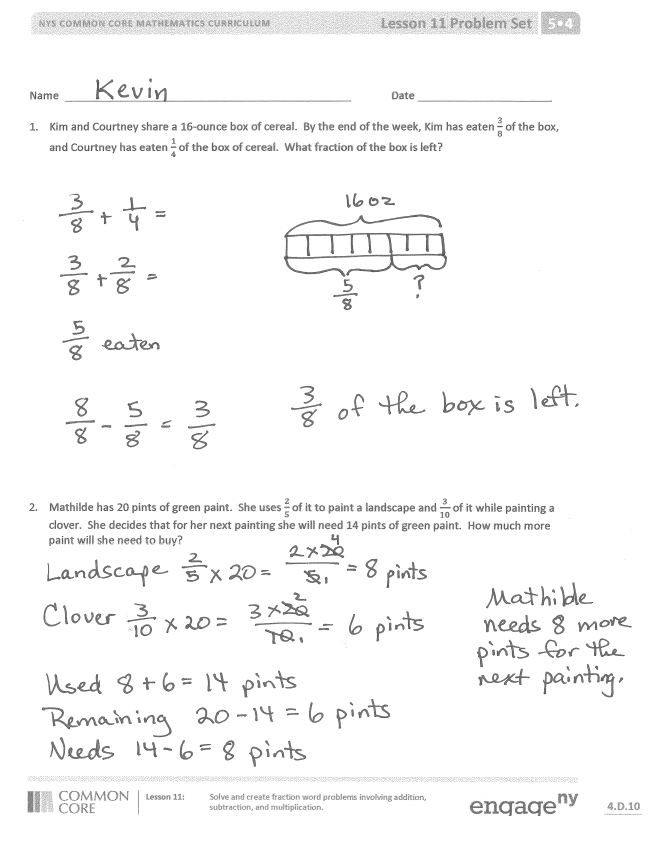 NYS COMMON CORE MATHEMATICS CURRICULUM Lesson 11 Problem Set 5•4
Name Kevin Date
1. Kim and Courtney share a 16-ounce box of cereal. By the end of the week, Kim has eaten 3/8 of the box,
and Courtney has eaten 1/4 of the box of cereal. What fraction of the box is left?
3/8 + 1/4 =
16 oz
3/8 + 2/8 =
5/8 ?
5/8 eaten
8/8 - 5/8 = 3/8
3/8 of the box is left.
2. Mathilde has 20 pints of green paint. She uses 2/5 of it to paint a landscape and 3/10 of it while painting a
clover. She decides that for her next painting she will need 14 pints of green paint. How much more
paint will she need to buy?
Landscape 2/5 x 20 = 2 x 20 4 / 5 1 = 8 pints
Clover 3/10 x 20 = 3 x 20 2 / 10 1 = 6 pints
Used 8 + 6 = 14 pints
Remaining 20 - 14 = 6 pints
Needs 14 - 6 = 8 pints
Mathilde
needs 8 more
pints for the
next painting.
COMMON CORE
Lesson 11: Solve and create fraction word problems involving addition,
subtraction, and multiplication.
engage ny
4.D.10